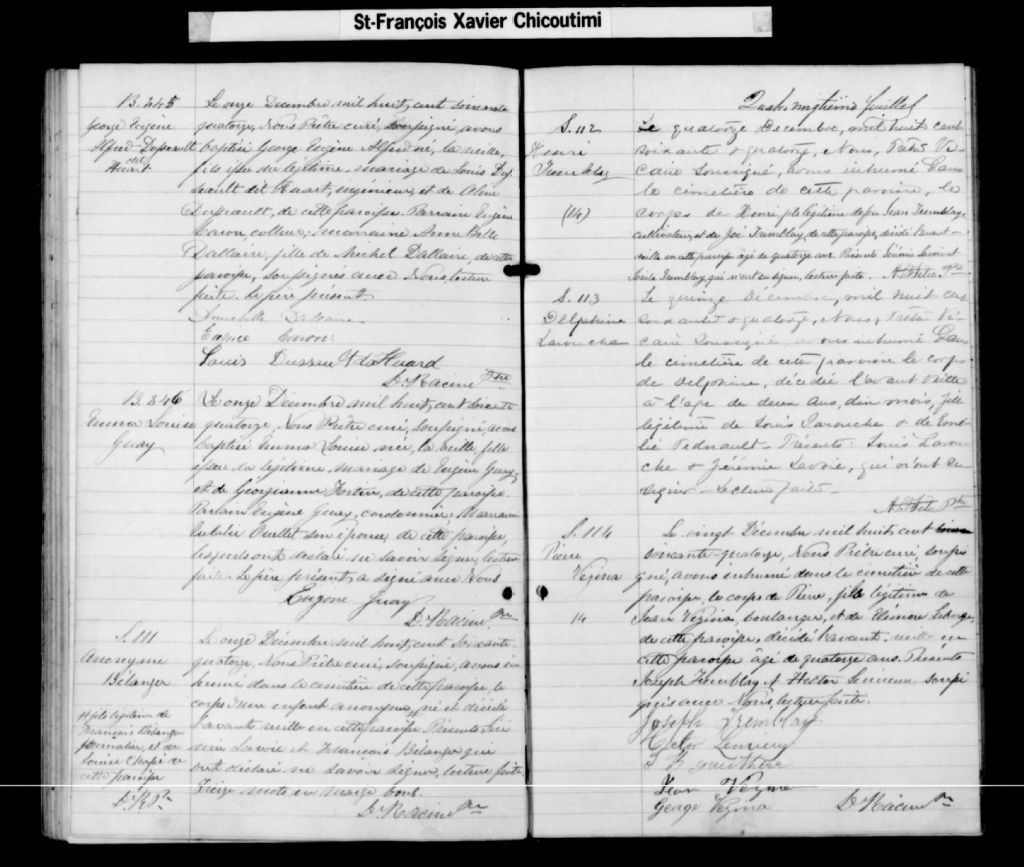 St-François Xavier Chicoutimi
B. 245
George Eugène
Alfred Dusseault
dit
Huart
Le onze Décembre mil huit cent soixante
quatorze, Nous Prêtre curé, soussigné, avons
baptisé George Eugène Alfred né, la veille,
fils issu du légitime mariage de Louis Dus
seault dit Huart, ingénieur, et de Olive
Dusseault, de cette paroisse. Parrain Eugène
Caron, marraine Anna Belle
Dallaire, fille de Michel Dallaire, de cette
paroisse, soussignés avec Nous, lecture
faite. Le père présent.
Louis Dusseault dit Huard
D. Racine Ptre
B. 246
Emma Louise
Guay
Le onze Décembre mil huit cent soixante
quatorze, Nous Prêtre curé, soussigné, avons
baptisé Emma Louise née, la veille, fille
issue du légitime mariage de Eugène Guay,
et de Georgianna Fortin, de cette paroisse.
Parrain Eugène Guay, cordonnier, Marraine
Eulalie Ouellet son épouse, de cette paroisse,
lesquels ont déclaré ne savoir signer, lecture
faite. Le père présent, a signé avec Nous.
Eugene Guay
D. Racine Ptre
S. 111
Anonyme
Bélanger
# fils légitime de
François Bélanger
journalier, et de
Louise
cette paroisse
D. R. Ptr
Le onze Décembre mil huit cent soixante
quatorze, Nous Prêtre curé, soussigné, avons in
humé dans le cimetière de cette paroisse, le
corps d'un enfant anonyme, # né et décédé
l'avant veille en cette paroisse. Présents
Lavoie et François Bélanger qui
ont déclaré ne savoir signer, lecture faite.
Treize mots en marge bons.
D. Racine Ptre
feuillet
S. 112
Henri
Tremblay
(14)
Le quatorze Décembre, mil huit cent
soixante & quatorze, Nous, Prêtre Vi-
caire soussigné, avons inhumé dans
le cimetière de cette paroisse, le
corps de Henri, fils légitime de feu Jean Tremblay,
cultivateur, et de Tremblay, de cette paroisse, décédé l'avant-
veille en cette paroisse âgé de quatorze ans. Présents Jérémie Lavoie et
Tremblay, qui n'ont su signer, lecture faite. Ptre
S. 113
Delphine
Larouche
Le quinze Décembre, mil huit cent
soixante & quatorze, Nous, Prêtre Vi-
caire soussigné, avons inhumé dans
le cimetière de cette paroisse le corps
de Delphine, décédée l'avant veille
à l'age de deux ans, dix mois, fille
légitime de Louis Larouche & de Emé-
lie Pednault. Présents: Louis Larou-
che & Jérémie Lavoie, qui n'ont su
signer. Lecture faite.
Ptre
S. 114
Pierre
Vezina
14
Le vingt Décembre mil huit cent
soixante-quatorze, Nous Prêtre curé, soussi
gné, avons inhumé dans le cimetière de cette
paroisse, le corps de Pierre, fils légitime de
Jean Vézina, boulanger, et de Eléonore
de cette paroisse, décédé l'avant-veille en
cette paroisse âgé de quatorze ans. Présents
Joseph Tremblay & Hector Lemieux soussi
gnés avec Nous, lecture faite.
Joseph Tremblay
Hector Lemieux
Jean Vezina
George Vezina
D. Racine Ptre